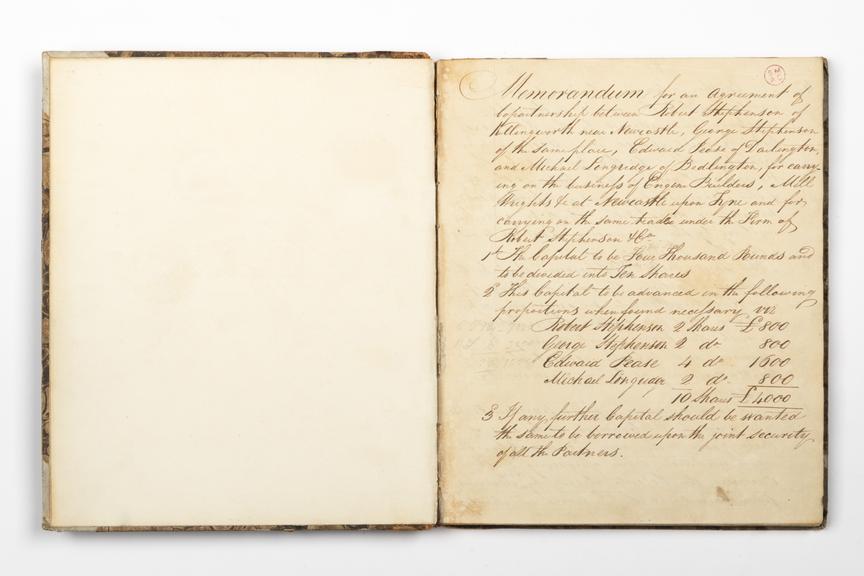 Memorandum for an Agreement of
Copartnership between Robert Stephenson of
Killingworth near Newcastle, George Stephenson
of the same place, Edward Pease of Darlington,
and Michael Longridge of Bedlington, for carry-
ing on the business of Engine Builders, Mill
Wrights &c at Newcastle upon Tyne and for
carrying on the same trades under the Firm of
Robert Stephenson & Co
1st The Capital to be Four Thousand Pounds and
to be divided into Ten Shares
2 This Capital to be advanced in the following
proportions when found necessary viz
Robert Stephenson 2 Shares £800
George Stephenson 2 do 800
Edward Pease 4 do 1600
Michael Longridge 2 do 800
10 Shares £4000
3 If any further Capital should be wanted
the same to be borrowed upon the joint security
of all the Partners.